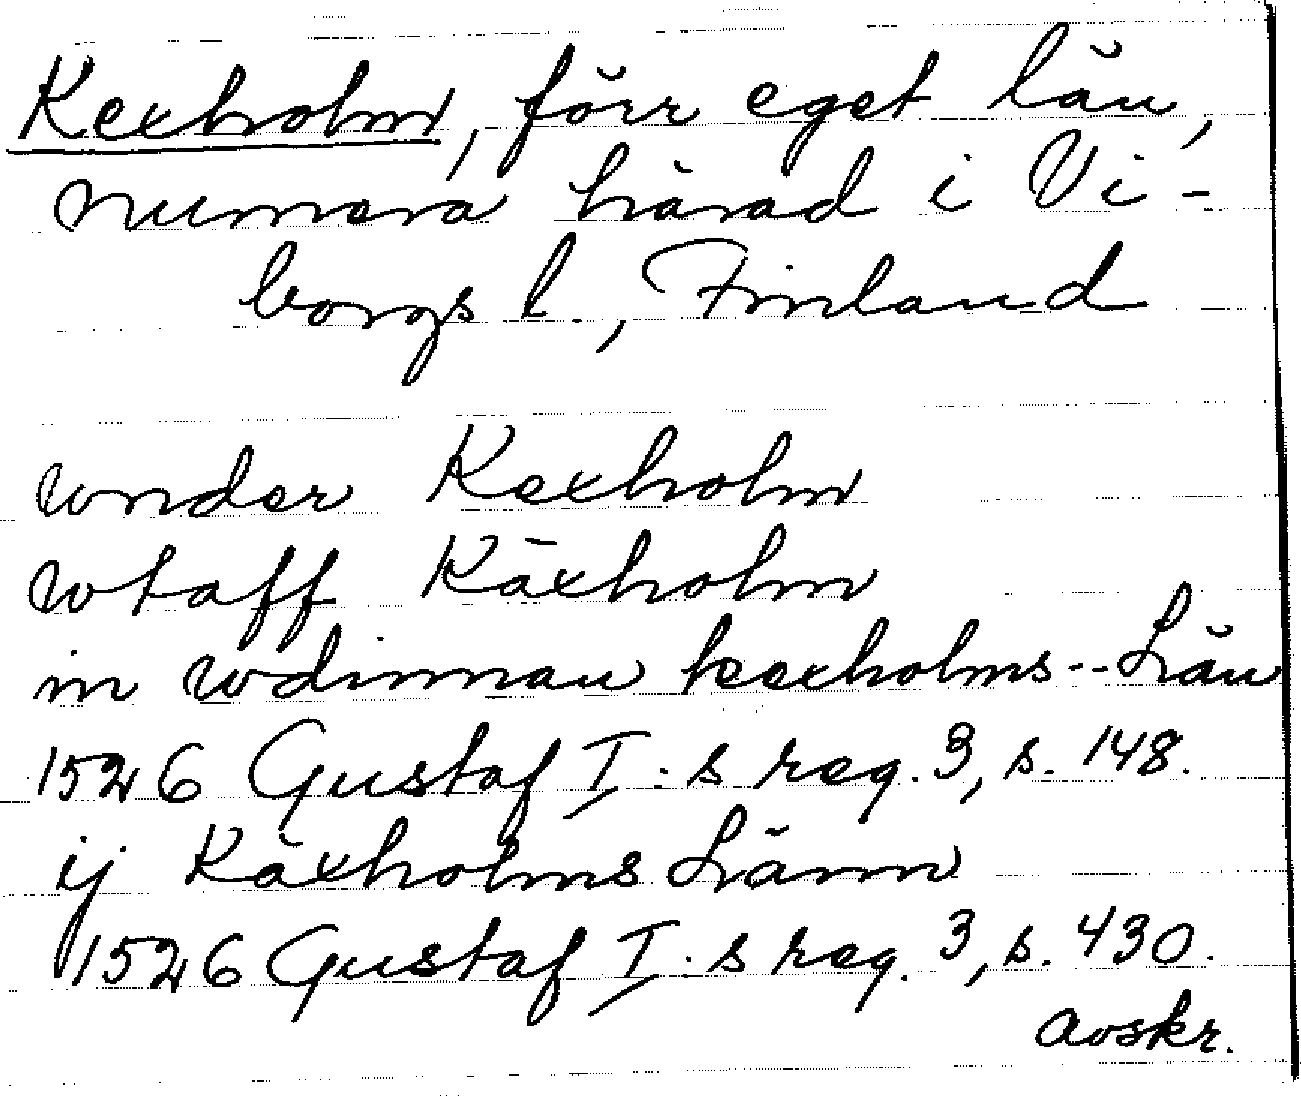 Kexholm, förr eget län,
numera härad i Vi-
borgs l., Finland
wnder Kexholm
wtaff Käxholm
in wdinnan kexholms--Län
1526 Gustaf I:s reg. 3, s. 148.
ij Käxholms Länn
1526 Gustaf I:s reg. 3, s. 430.
Avskr.